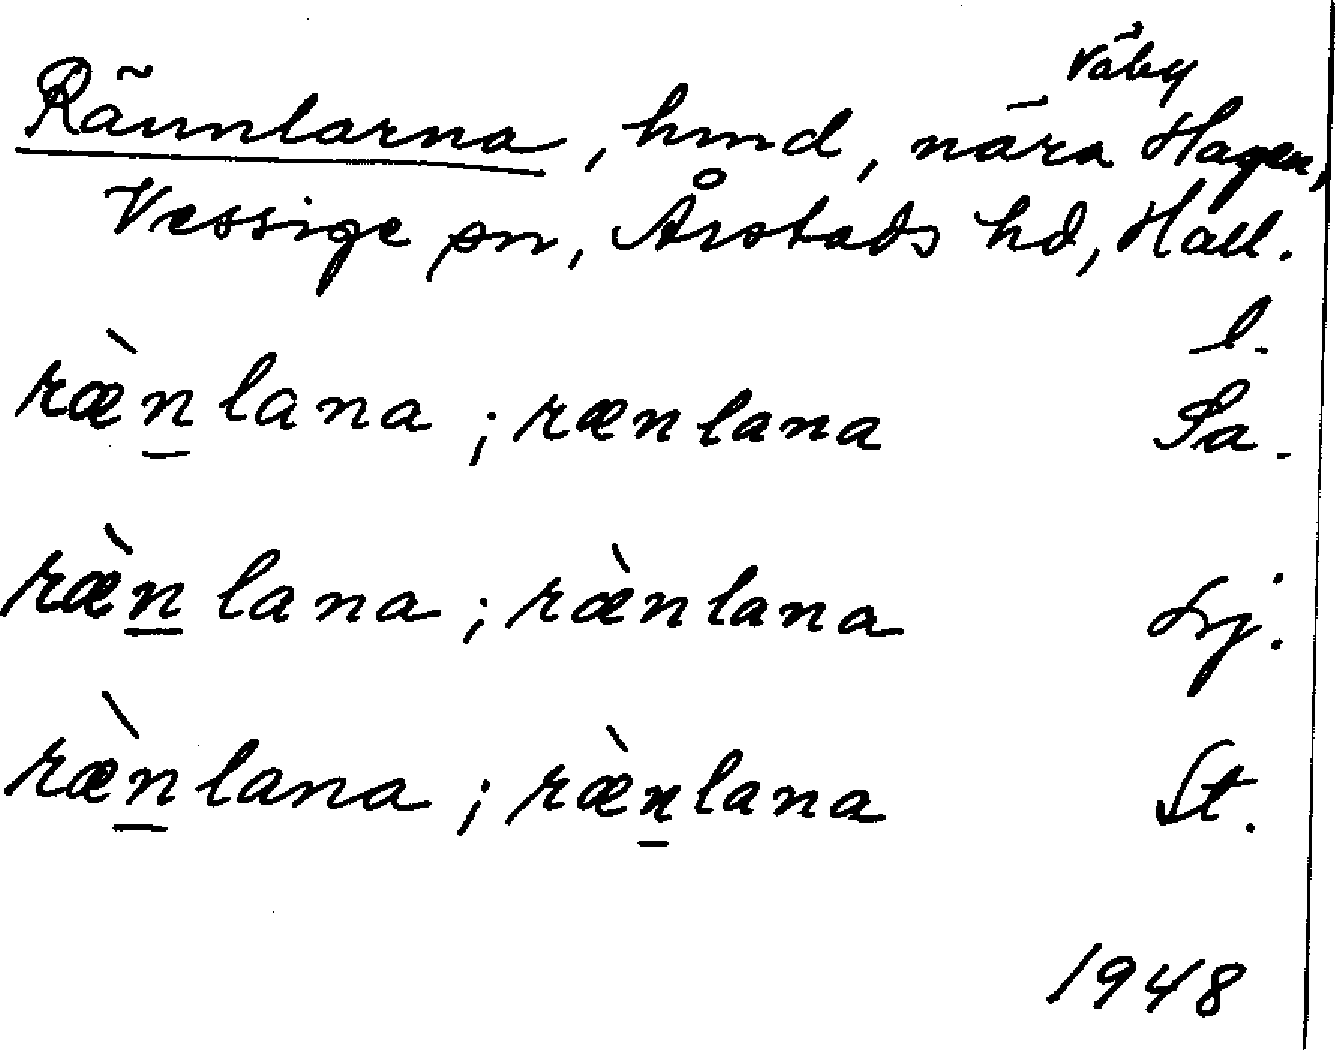 Väby
Rännlarna, hmd, nära Hagen,
Vessige sn, Årstads hd, Hall.
l.
ræ̀n̲lana ; rænlana Pa.
ræ̀n̲lana ; ræ̀nlana Lj.
ræ̀n̲lana ; ræ̀n̲lana St.
1948